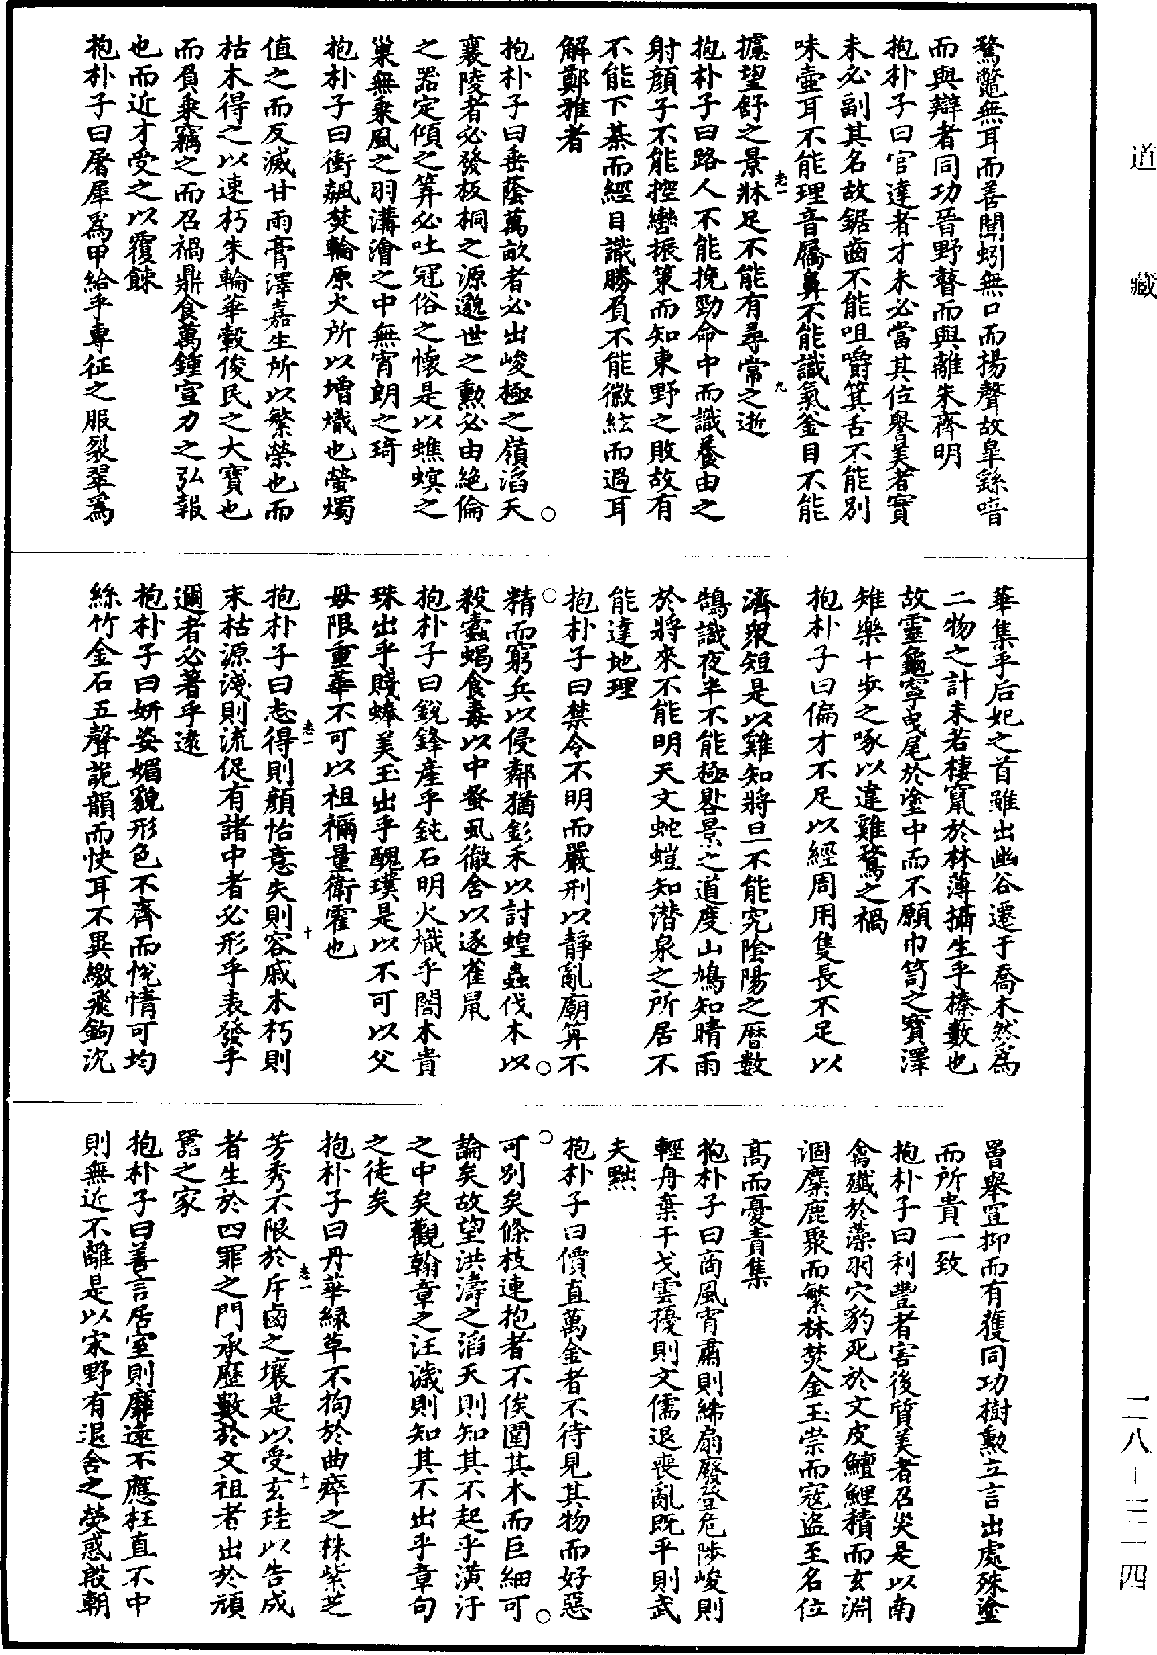 道藏
鶩鼈無耳而善聞蚓無口而揚聲故臯繇喑
而與辯者同功晉野瞽而與離朱齊明
抱朴子曰官達者才未必當其位譽美者實
未必副其名故鋸齒不能咀嚼箕舌不能別
味壺耳不能理音屩鼻不能識氣釜目不能
攄望舒之景牀足不能有尋常之逝
抱朴子曰路人不能挽勁命中而識養由之
射顏子不能控轡振策而知東野之敗故有
不能下棊而經目識勝負不能徽絃而過耳
解鄭雅者
抱朴子曰垂蔭萬畝者必出峻極之嶺滔天
襄陵者必發板桐之源邈世之勲必由絶倫
之器定傾之算必吐冠俗之懷是以蟭螟之
巢無乘風之羽溝澮之中無宵朗之琦
抱朴子曰衝飆焚輪原火所以增熾也螢燭
值之而反滅甘雨膏澤嘉生所以繁榮也而
枯木得之以速朽朱輪華轂俊民之大寶也
而負乘竊之而召禍鼎食萬鍾宣力之弘報
也而近才受之以覆餗
抱朴子曰屠犀爲甲給乎專征之服裂翠爲
華集乎后妃之首雖出幽谷遷于喬木然爲
二物之計未若棲竄於林薄攝生乎榛藪也
故靈龜寧曳尾於塗中而不願巾笥之寶澤
雉樂十步之啄以違雞鶩之禍
抱朴子曰偏才不足以經周用隻長不足以
濟衆短是以雞知將旦不能究陰陽之曆數
鵠識夜半不能極晷景之道度山鳩知晴雨
於將來不能明天文蛇螘知潛泉之所居不
能達地理
抱朴子曰禁令不明而嚴刑以靜亂廟算不
精而窮兵以侵鄰猶釤禾以討蝗蟲伐木以
殺蠹蝎食毒以中蚤虱徹舍以逐雀鼠
抱朴子曰銳鋒產乎鈍石明火熾乎闇木貴
珠出乎賤蚌美玉出乎醜璞是以不可以父
母限重華不可以祖禰量衛霍也
抱朴子曰志得則顏怡意失則容戚木朽則
末枯源淺則流促有諸中者必形乎表發乎
邇者必著乎遠
抱朴子曰妍姿媚貌形色不齊而恱情可均
絲竹金石五聲詭韻而快耳不異繳飛鉤沉
罾舉罝抑而有獲同功樹勲立言出處殊塗
而所貴一致
抱朴子曰利豐者害後質美者召災是以南
禽殲於藻羽穴豹死於文皮鱣鯉積而玄淵
涸麋鹿聚而繁林焚金玉崇而寇盜至名位
高而憂責集
抱朴子曰商風宵肅則絺扇廢登危陟峻則
輕舟棄干戈雲擾則文儒退喪亂既平則武
夫黜
抱朴子曰價直萬金者不待見其物而好惡
可別矣條枝連抱者不俟圍其木而巨細可
論矣故望洪濤之滔天則知其不起乎潢汙
之中矣觀翰章之汪濊則知其不出乎章句
之徒矣
抱朴子曰丹華綠草不拘於曲瘁之株紫芝
芳秀不限於斥鹵之壤是以受玄珪以告成
者生於四罪之門承歷數於文祖者出於頑
嚚之家
抱朴子曰善言居室則靡遠不應枉直不中
則無近不離是以宋野有退舍之熒惑殷朝
志一
九
志一
十
志一
十一
二八-二一四